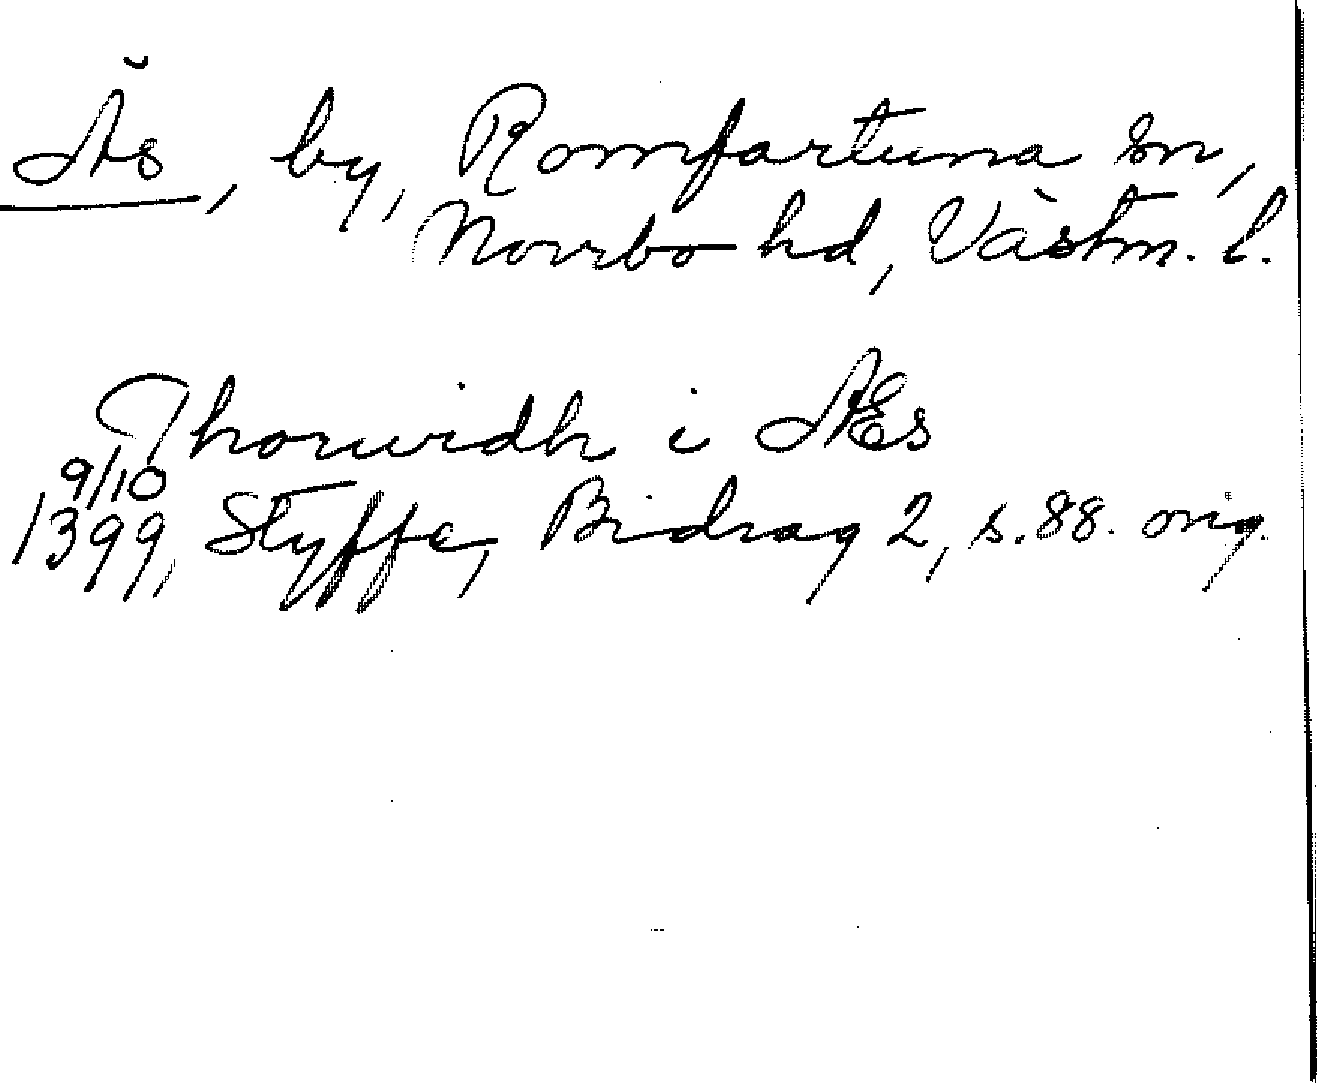 Äs, by, Romfartuna sn,
Norrbo hd, Västm. l.
Thorwidh i Æs
9/10
1399, Styffe, Bidrag 2, s. 88. orig.